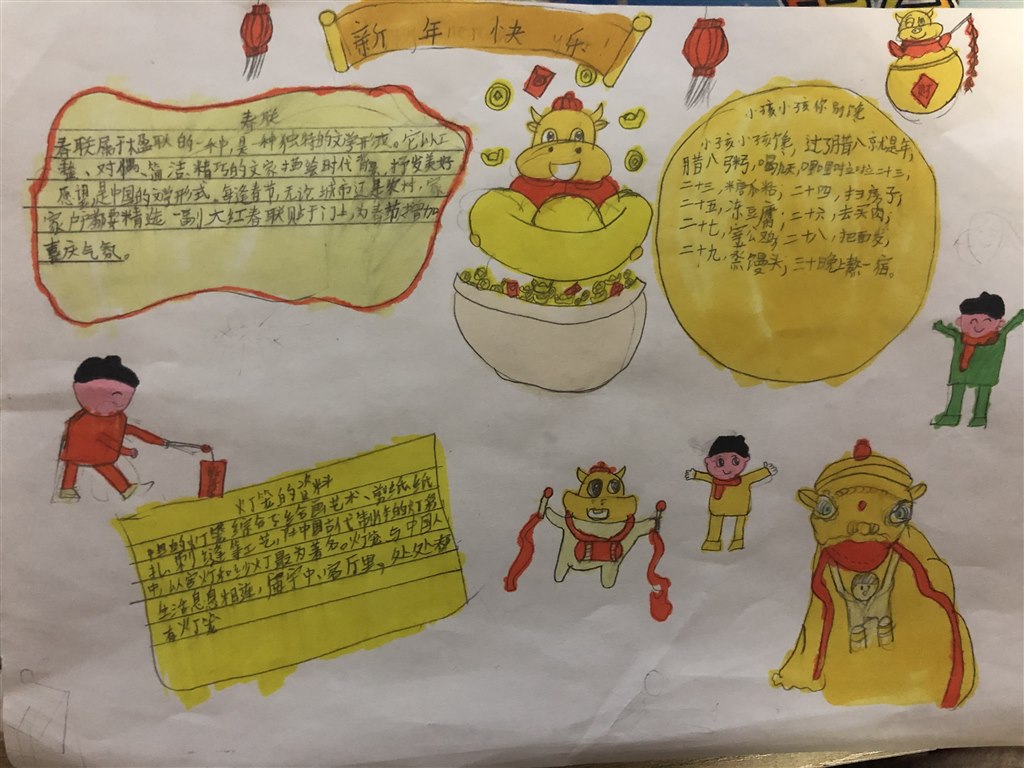 新年快乐
财
春联
春联属于楹联的一种,是一种独特的文学形式。它以工
整、对偶、简洁、精巧的文字描绘时代背景,抒发美好
愿望,是中国的文学形式。每逢春节,无论城市还是农村,家
家户户都要精选一副大红春联贴于门上,为春节增加
喜庆气氛。
小孩小孩你别馋
小孩小孩馋,过了腊八就是年,
腊八粥,喝几天,哩哩啦啦二十三,
二十三,糖瓜粘,二十四,扫房子,
二十五,冻豆腐,二十六,去买肉,
二十七,宰公鸡,二十八,把面发,
二十九,蒸馒头,三十晚上熬一宿。
灯笼的资料
中国的灯笼综合了绘画艺术、剪纸、纸
扎、刺缝等工艺,在中国古代制作的灯笼
中,以宫灯和纱灯最为著名。灯笼与中国人
生活息息相连,庙宇中、客厅里,处处都
有灯笼